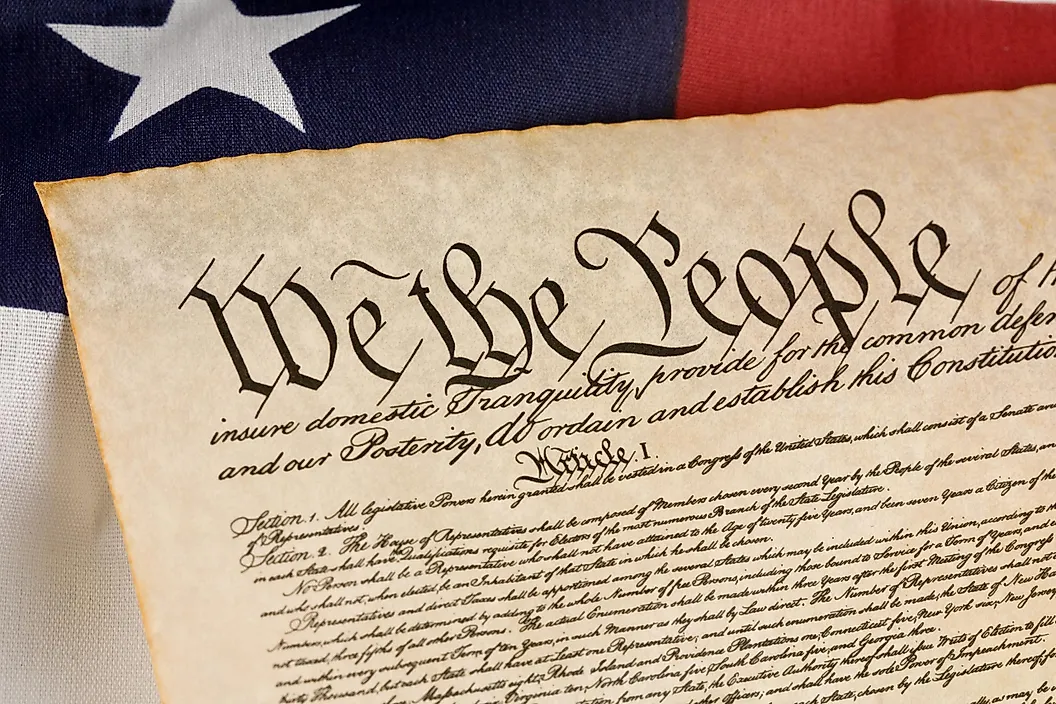 We the People of
insure domestic Tranquility, provide for the common defen
and our Posterity, do ordain and establish this Constitutio
Article. I.
Section. 1. All legislative Powers herein granted shall be vested in a Congress of the United States, which shall consist of a Senate an
of Representatives.
Section. 2. The House of Representatives shall be composed of Members chosen every second Year by the People of the several States, an
in each State shall have the Qualifications requisite for Electors of the most numerous Branch of the State Legislature.
No Person shall be a Representative who shall not have attained to the Age of twenty five Years, and been seven Years a Citizen of the
and who shall not, when elected, be an Inhabitant of that State in which he shall be chosen.
Representatives and direct Taxes shall be apportioned among the several States which may be included within this Union, according to
Numbers, which shall be determined by adding to the whole Number of free Persons, including those bound to Service for a Term of Years, and
not taxed, three fifths of all other Persons. The actual Enumeration shall be made within three Years after the first Meeting of the Congress
and within every subsequent Term of ten Years, in such Manner as they shall by Law direct. The Number of Representatives shall not
thirty Thousand, but each State shall have at Least one Representative; and until such enumeration shall be made, the State of New Ham
Massachusetts eight, Rhode Island and Providence Plantations one, Connecticut five, New York six, New Jersey
Virginia ten, North Carolina five, South Carolina five, and Georgia three.
from any State, the Executive Authority thereof shall issue Writs of Election to fill
other Officers; and shall have the sole Power of Impeachment.
State, chosen by the Legislature thereof, for